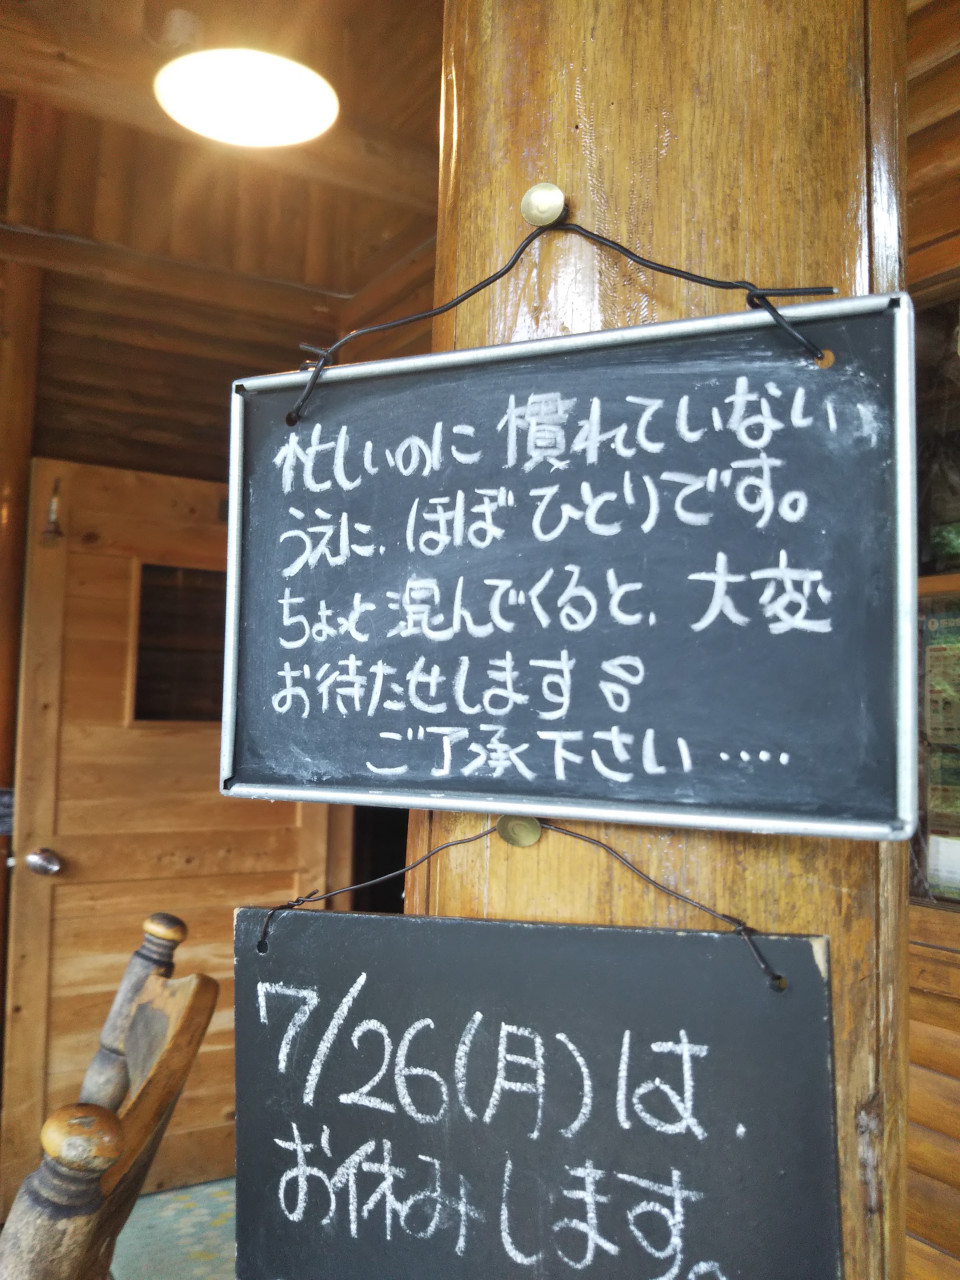 忙しいのに慣れていない
うえに、ほぼひとりです。
ちょっと混んでくると、大変
お待たせします
ご了承下さい‥‥
7/26(月)は、
お休みします。